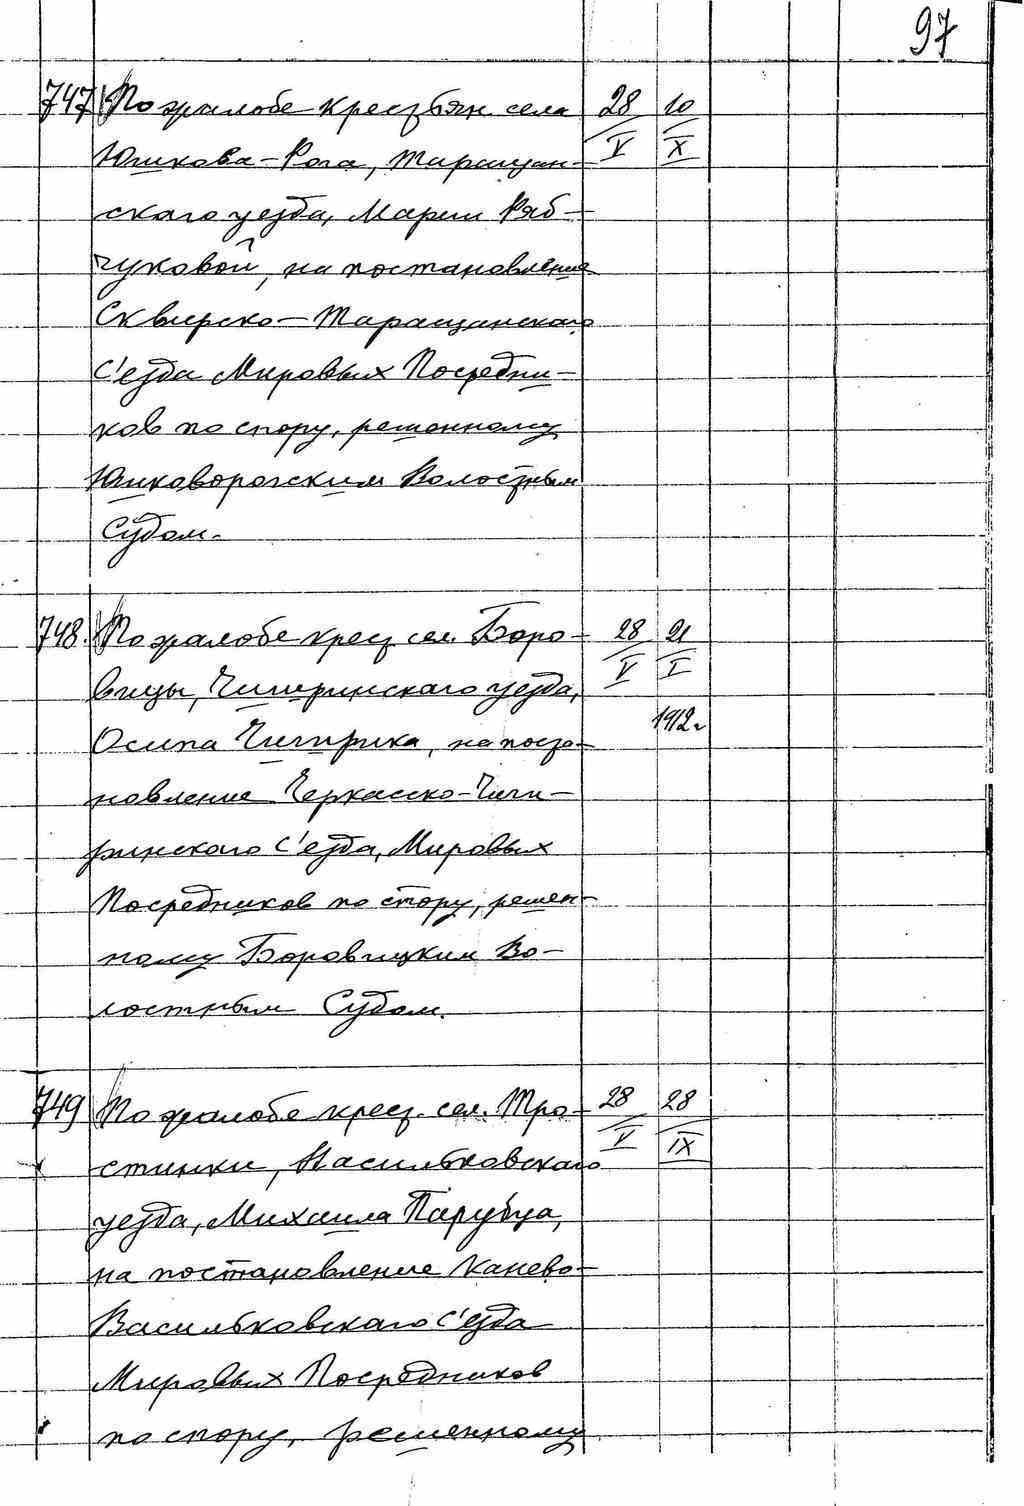 97
747 По жалобе крестьян. села 28/V 10/X
Юшкова-Рога, Таращан-
ского уезда, Марии Ряб-
чуковой, на постановление
Сквирско-Таращанского
С'езда Мировых Посредни-
ков по спору, решенному
Юшковорогским Волостным
Судом.
748. По жалобе крест. сел. Боро- 28/V 21/I
вицы, Чигиринского уезда,
1912 г
Осипа Чигирика, на поста-
новление Черкасско-Чиги-
ринского С'езда, Мировых
Посредников по спору, решен-
ному Боровицким Во-
лостным Судом.
749 По жалобе крест. сел. Тро- 28/V 28/IX
стинки, Васильковского
уезда, Михаила Парубца,
на постановление Канево-
Васильковского С'езда
Мировых Посредников
по спору, решенному